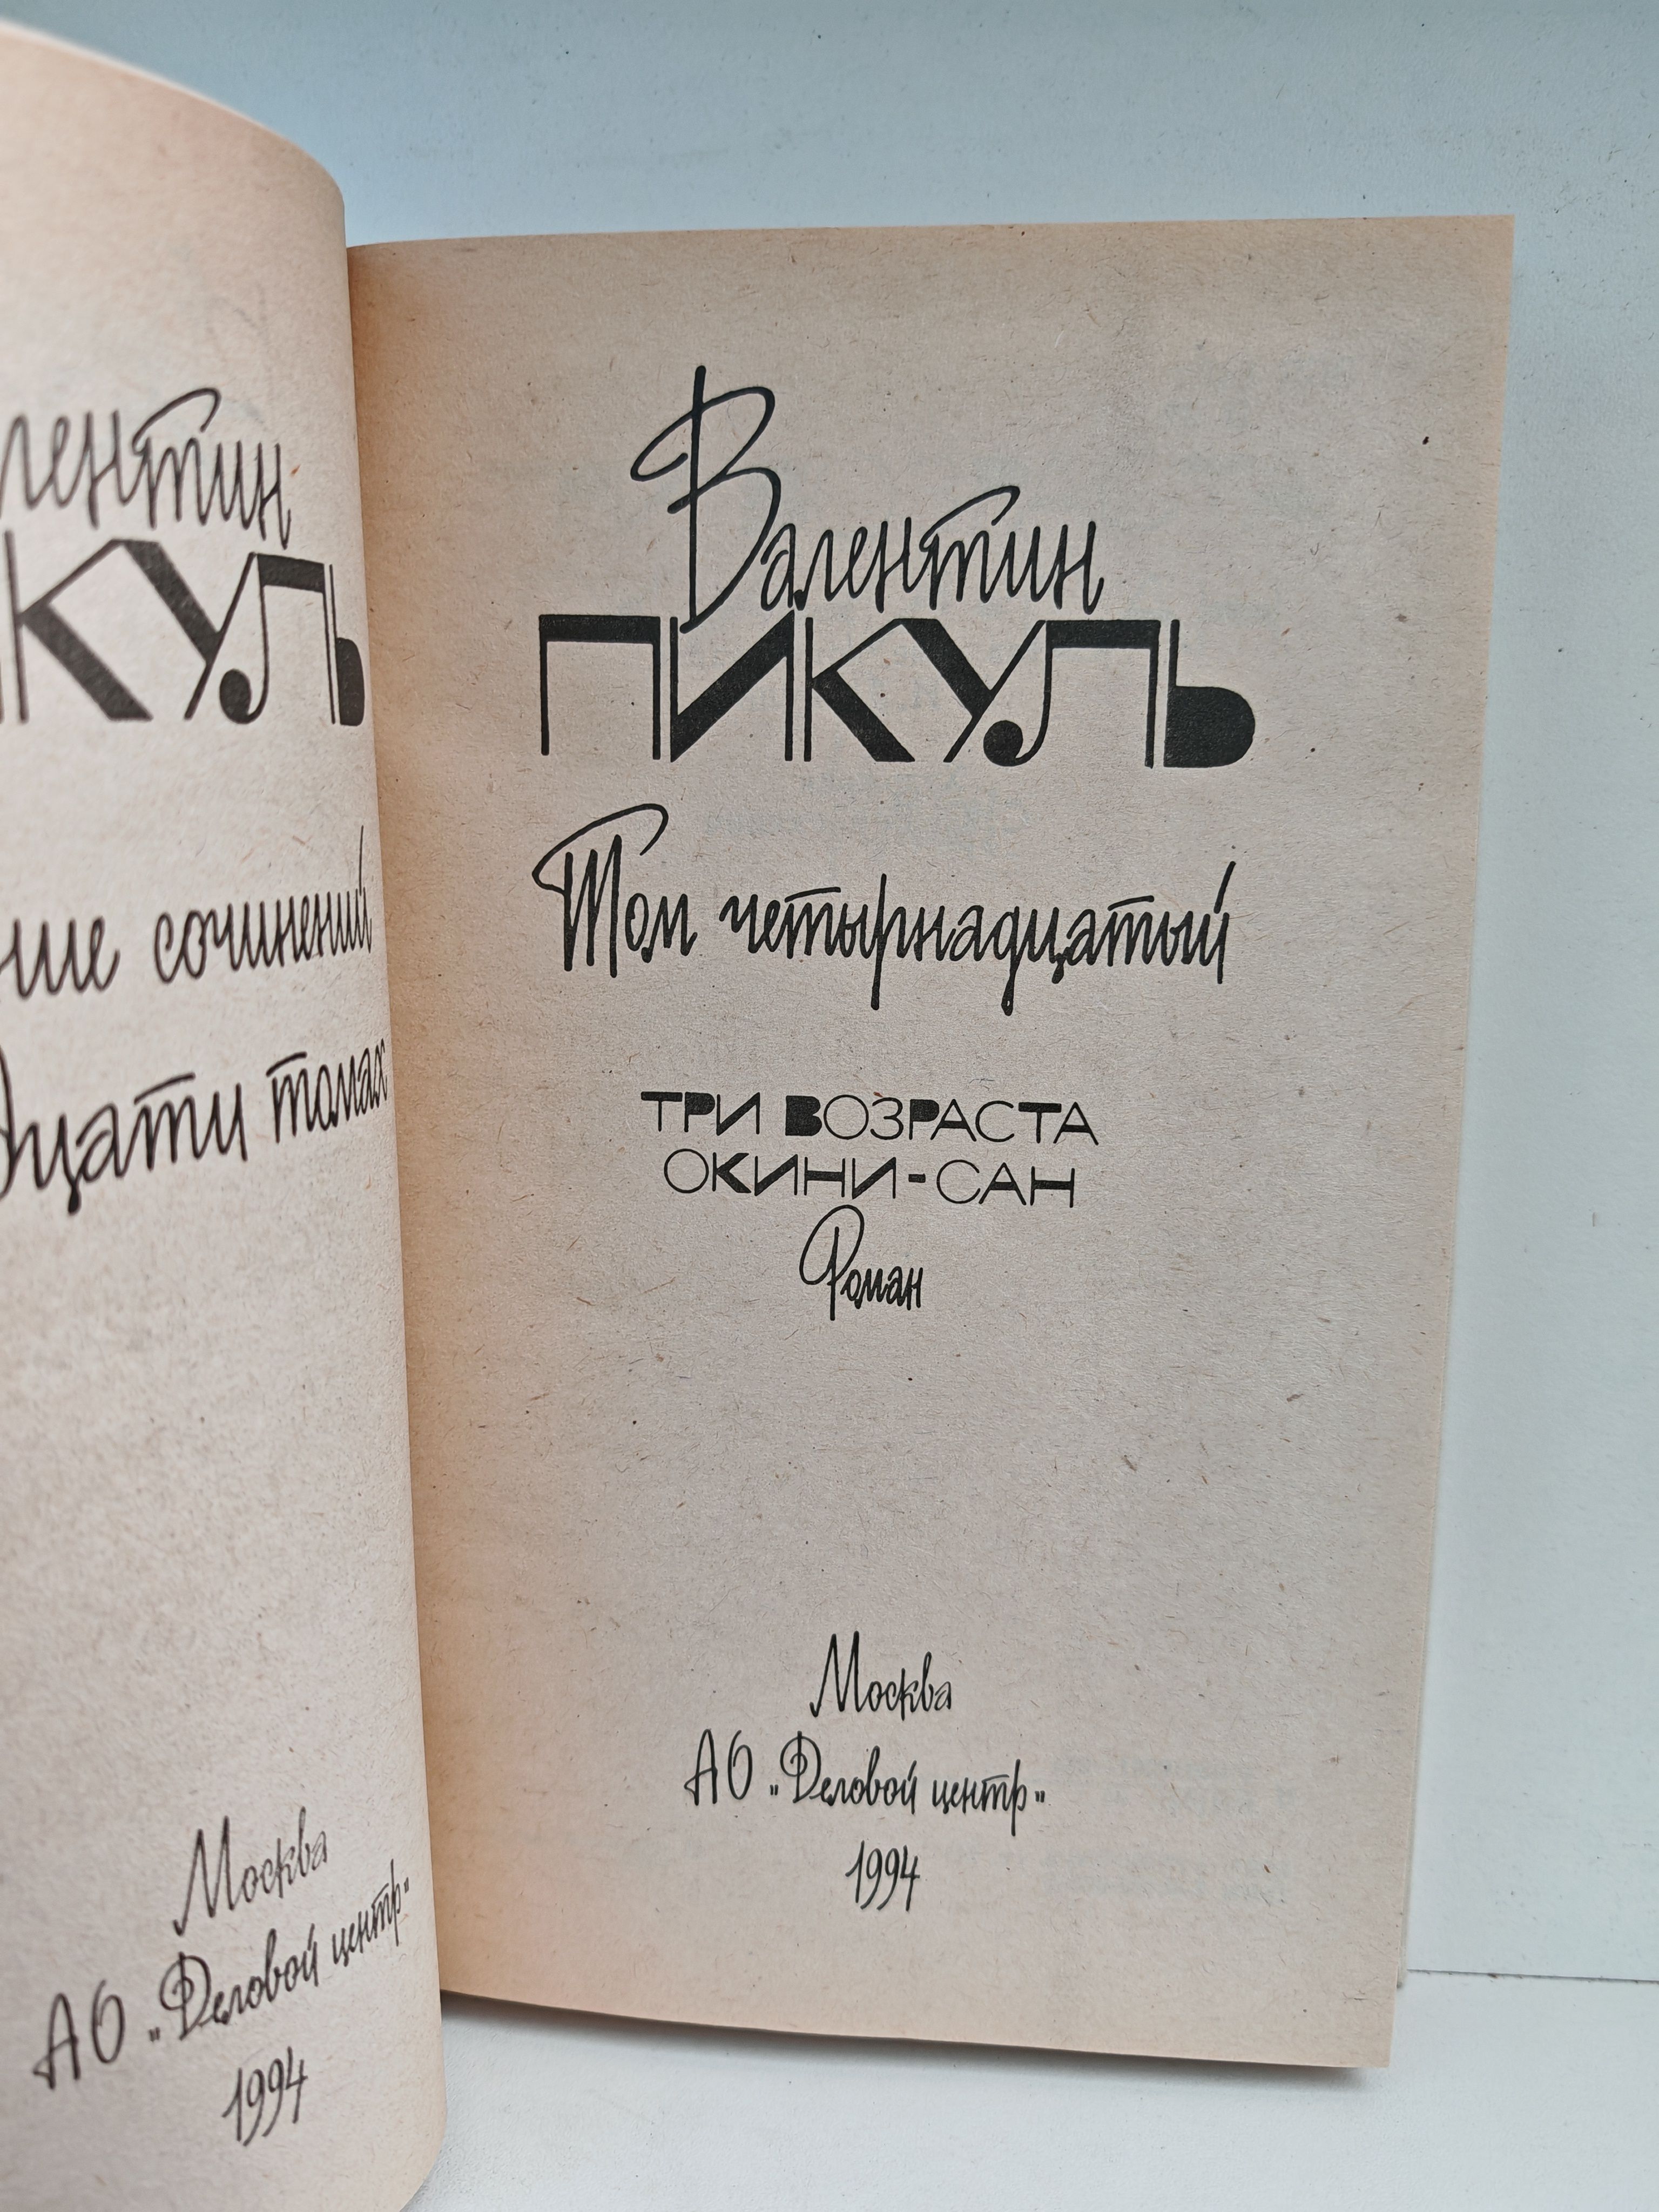 Валентин
ПИКУЛЬ
сочинений
томах
Москва
АО „Деловой центр"
1994
Валентин
ПИКУЛЬ
Том четырнадцатый
ТРИ ВОЗРАСТА
ОКИНИ-САН
Роман
Москва
АО „Деловой центр"
1994